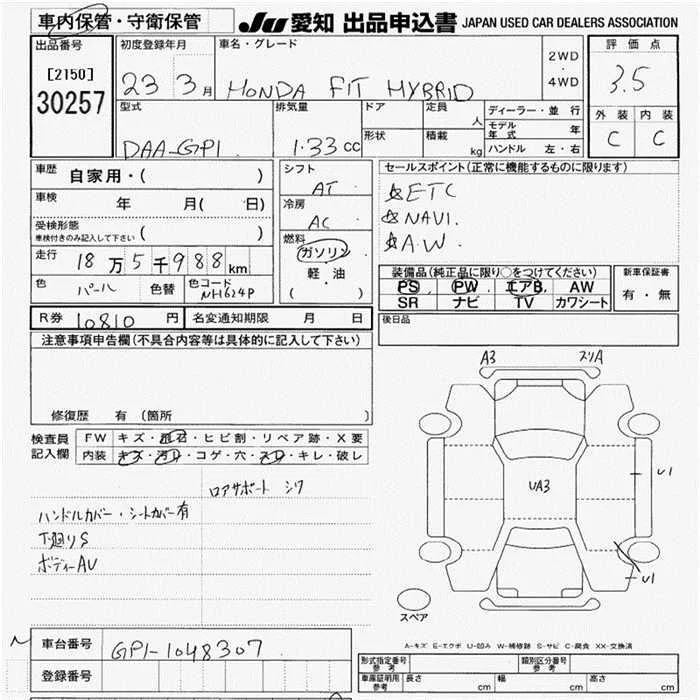 車内保管・守衛保管 JU 愛知 出品申込書 JAPAN USED CAR DEALERS ASSOCIATION
出品番号 初度登録年月 車名・グレード 評価点
[2150] 23 3月 HONDA FIT HYBRID 2WD・4WD 3.5
30257
型式 排気量 ドア 定員 人 ディーラー・並行 外装 内装
モデル年式 年
DAA-GP1 1.33cc 形状 積載 kg ハンドル 左・右 C C
車歴 自家用・( ) シフト AT セールスポイント(正常に機能するものに限ります)
車検 年 月( 日) 冷房 AC ☆ETC
☆NAVI.
受検形態 車検付きのみ記入して下さい ( ) 燃料 ☆A.W.
走行 18万5千988km ガソリン
色 パール 色替 色コード NH624P 軽・油 ( )
装備品(純正品に限り○をつけてください) 新車保証書
PS PW エアB. AW 有・無
SR ナビ TV カワシート
R券 10810円 名変通知期限 月 日 後日品
注意事項申告欄(不具合内容等は具体的に記入して下さい)
修復歴 有 (箇所 )
検査員記入欄 FW キズ・飛石・ヒビ割・リペア跡・X要
内装 キズ・汚れ・コゲ・穴・スレ・キレ・破レ
ロアサポート シワ
ハンドルカバー・シートカバー有
下廻りS
ボディーAU
A3 スリA
UA3
U1
U1
スペア
A-キズ E-エクボ U-凹み W-補修跡 S-サビ C-腐食 XX-交換済
車台番号 GP1-1048307
登録番号
型式指定番号 参考 類別区分番号 参考
車庫証明用 参考 長さ cm 幅 cm 高さ cm